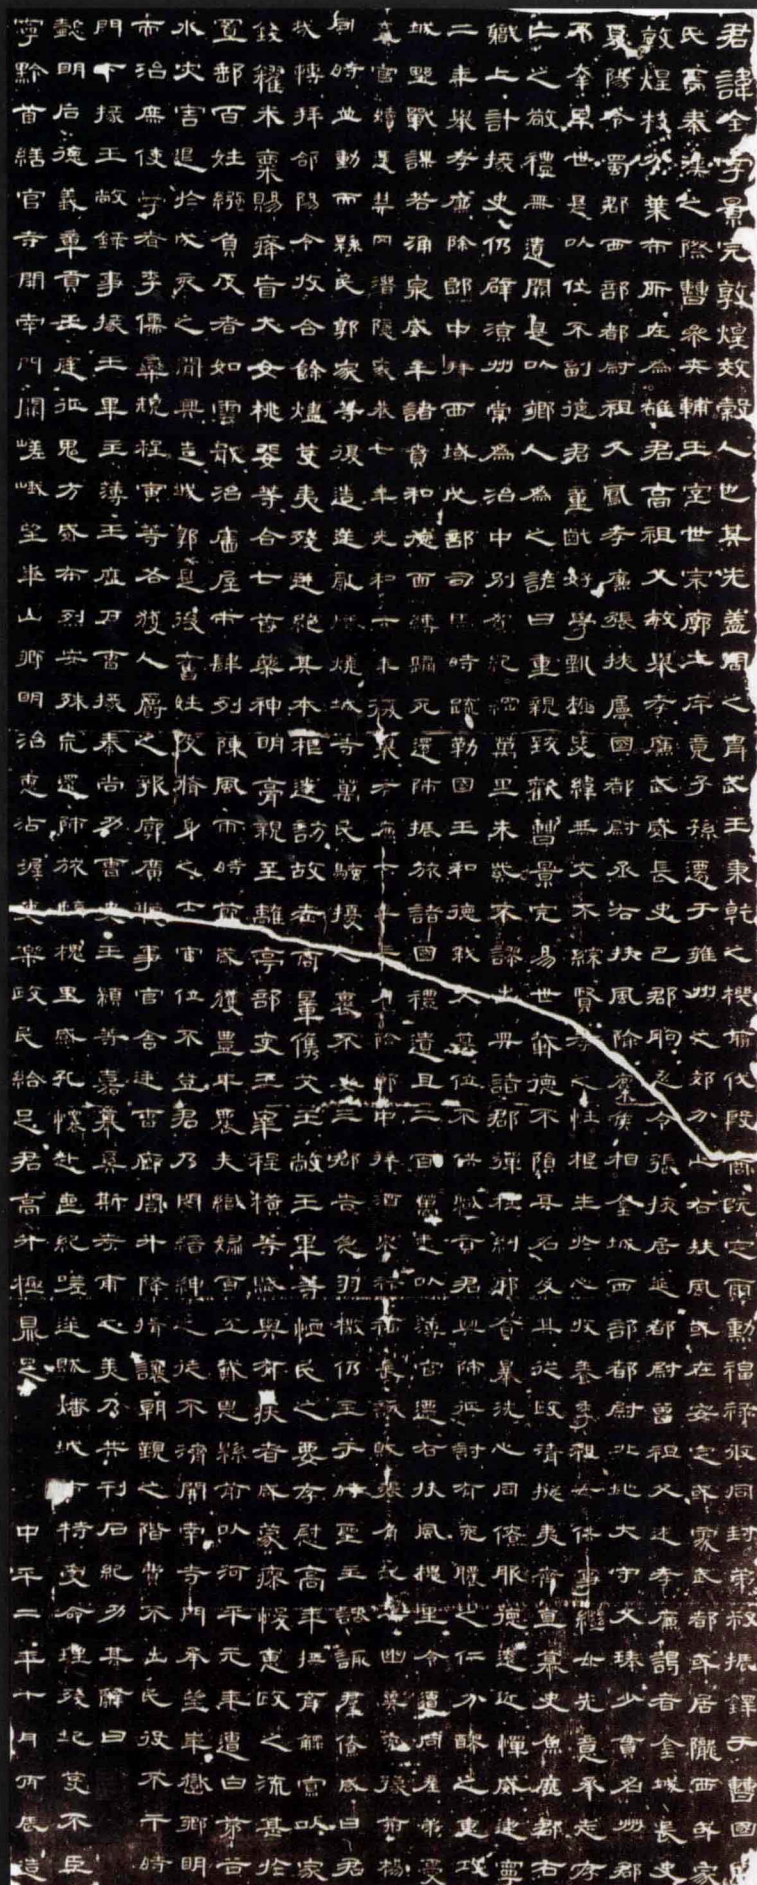 君諱全字景完敦煌效穀人也其先蓋周之胄武王秉乾之機翦伐殷商既定爾勳福祿攸同封弟叔振鐸于曹國因
氏焉秦漢之際曹參夾輔王室世宗廓土斥竟子孫遷于雍州之郊分止右扶風或在安定或處武都或居隴西或家
敦煌枝分葉布所在為雄君高祖父敏舉孝廉武威長史巴郡朐忍令張掖居延都尉曾祖父述孝廉謁者金城長史
夏陽令蜀郡西部都尉祖父鳳孝廉張掖屬國都尉丞右扶風隃麋侯相金城西部都尉北地大守父琫少貫名州郡
不幸早世是以位不副德君童齔好學甄極毖緯無文不綜賢孝之性根生於心收養季祖母供事繼母先意承志存
亡之敬禮無遺闕是以鄉人為之諺曰重親致歡曹景完易世載德不隕其名及其從政清擬夷齊直慕史魚歷郡右
職上計掾史仍辟涼州常為治中別駕紀綱萬里朱紫不謬出典諸郡彈枉糾邪貪暴洗心同僚服德遠近憚威建寧
二年舉孝廉除郎中拜西域戊部司馬時疏勒國王和德弒父篡位不供職貢君興師征討有吮膿之仁分醪之惠攻
城野戰謀若涌泉威牟諸賁和德面縛歸死還師振旅諸國禮遺且二百萬悉以薄官遷右扶風槐里令遭同產弟憂
棄官續遇禁冈潛隱家巷七年光和六年復舉孝廉七年三月除郎中拜酒泉祿福長訞賊張角起兵幽冀兗豫荊楊
同時並動而縣民郭家等復造逆亂燔燒城寺萬民騷擾人裹不安三郡告急羽檄仍至于時聖主諮諏群僚咸曰君
哉轉拜郃陽令收合餘燼芟夷殘迸絕其本根遂訪故老商量儁艾王敞王畢等恤民之要存慰高年撫育鰥寡以家
錢糴米粟賜癃盲大女桃婓等合七首藥神明膏親至離亭部吏王宰程橫等賦與有疾者咸蒙瘳悛惠政之流甚於
置郵百姓繈負反者如雲戢治廧屋市肆列陳風雨時節歲獲豐年農夫織婦百工戴恩縣前以河平元年遭白茅谷
水灾害退於戊亥之間興造城郭是後舊姓及脩身之士官位不登君乃閔縉紳之徒不濟開南寺門承望華嶽鄉明
而治庶使學者李儒欒規程寅等各獲人爵之報廓廣聽事官舍廷曹廊閤升降揖讓朝覲之階費不出民役不干時
門下掾王敞錄事掾王畢主薄王歷戶曹掾秦尚功曹史王顓等嘉慕奚斯考甫之美乃共刊石紀功其辭曰
懿明后德義章貢王庭征鬼方威布烈安殊荒還師旅臨槐里感孔懷赴喪紀嗟逆賊燔城市特受命理殘圮芟不臣
寧黔首繕官寺開南門闕嵯峨望華山鄉明治惠沾渥吏樂政民給足君高升極鼎足 中平二年十月丙辰造